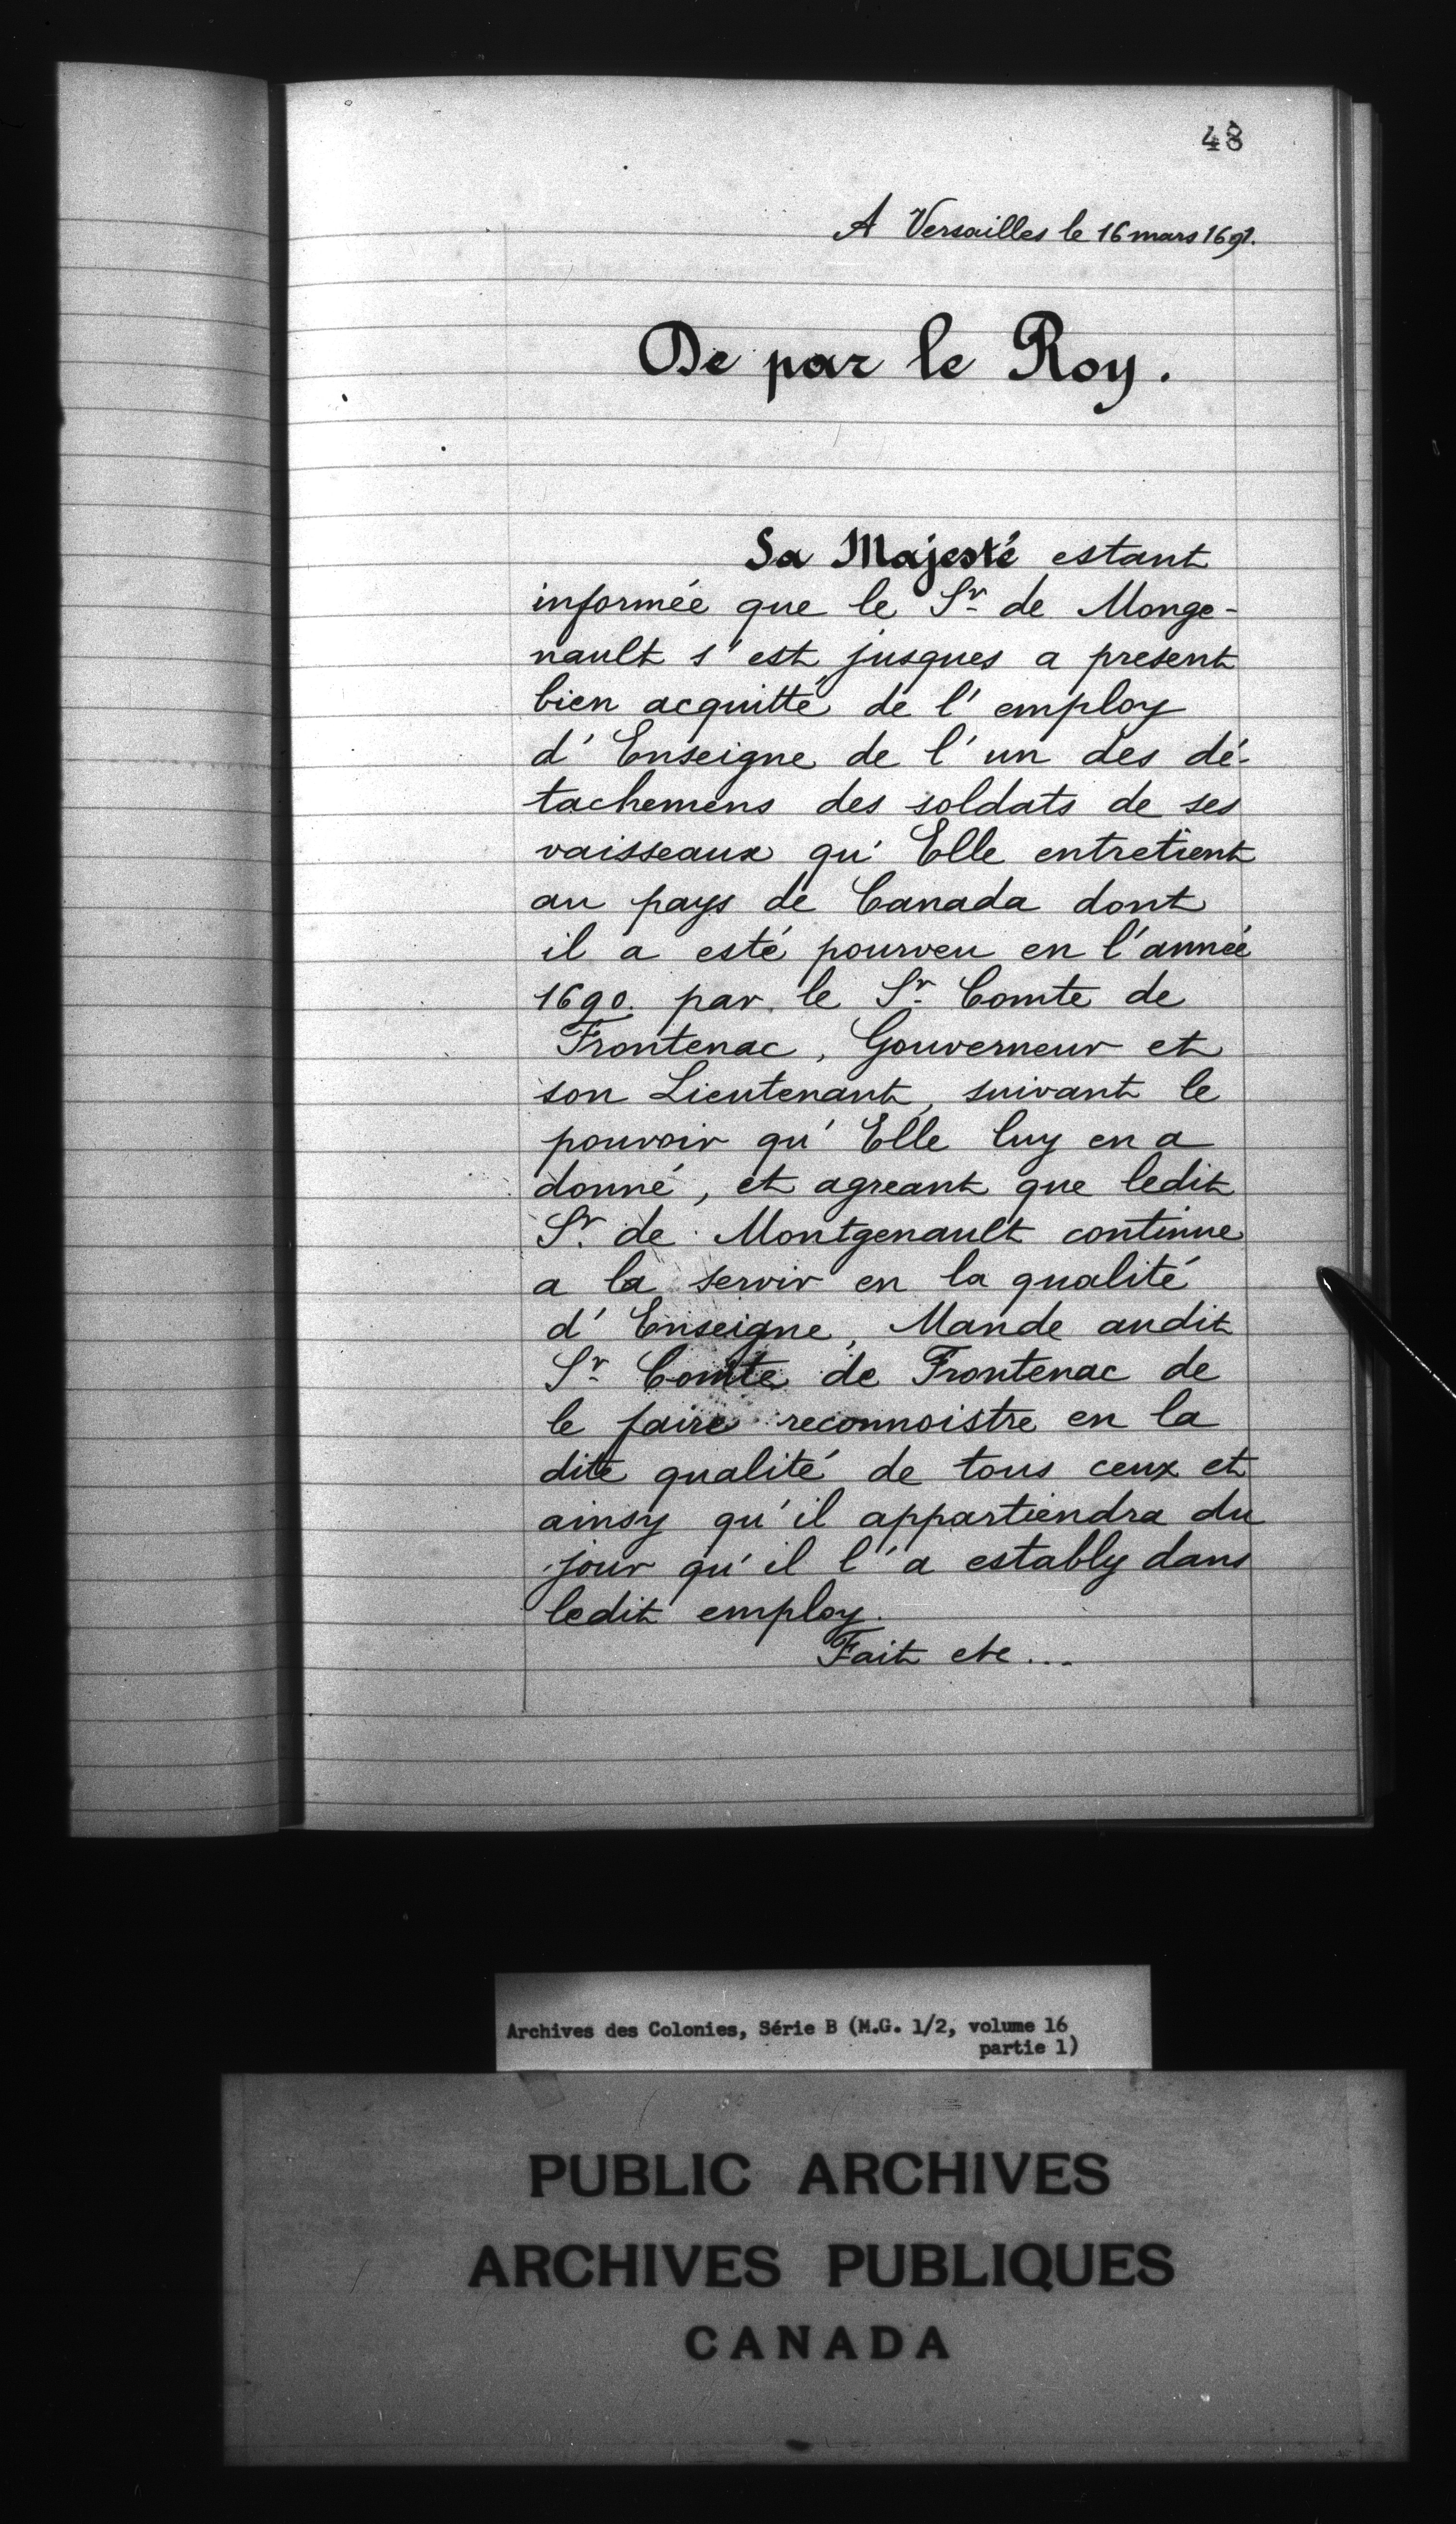 48
A Versailles le 16 mars 1691.
De par le Roy.
Sa Majesté estant
informée que le Sr de Monge-
nault s'est jusques a present
bien acquitté de l'employ
d'Enseigne de l'un des dé-
tachemens des soldats de ses
vaisseaux qu'Elle entretient
au pays de Canada dont
il a esté pourveu en l'année
1690. par le Sr Comte de
Frontenac, Gouverneur et
son Lieutenant, suivant le
pouvoir qu'Elle luy en a
donné, et agreant que ledit
Sr. de Montgenault continue
a la servir en la qualité
d'Enseigne, Mande audit
Sr Comte de Frontenac de
le faire reconnoistre en la
dite qualité de tous ceux et
ainsy qu'il appartiendra du
jour qu'il l'a estably dans
ledit employ.
Fait etc...
Archives des Colonies, Série B (M.G. 1/2, volume 16
partie 1)
PUBLIC ARCHIVES
ARCHIVES PUBLIQUES
CANADA